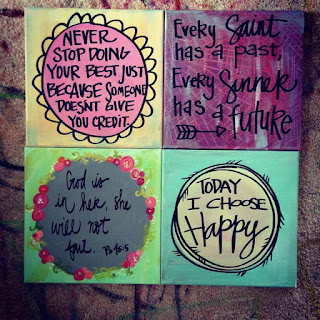 NEVER
STOP DOING
YOUR BEST JUST
BECAUSE SOMEONE
DOESN'T GIVE
YOU CREDIT.
Every Saint
has a past,
Every Sinner
has a
future
God is
in her, she
will not
fail. Ps 46:5
TODAY
I CHOOSE
Happy